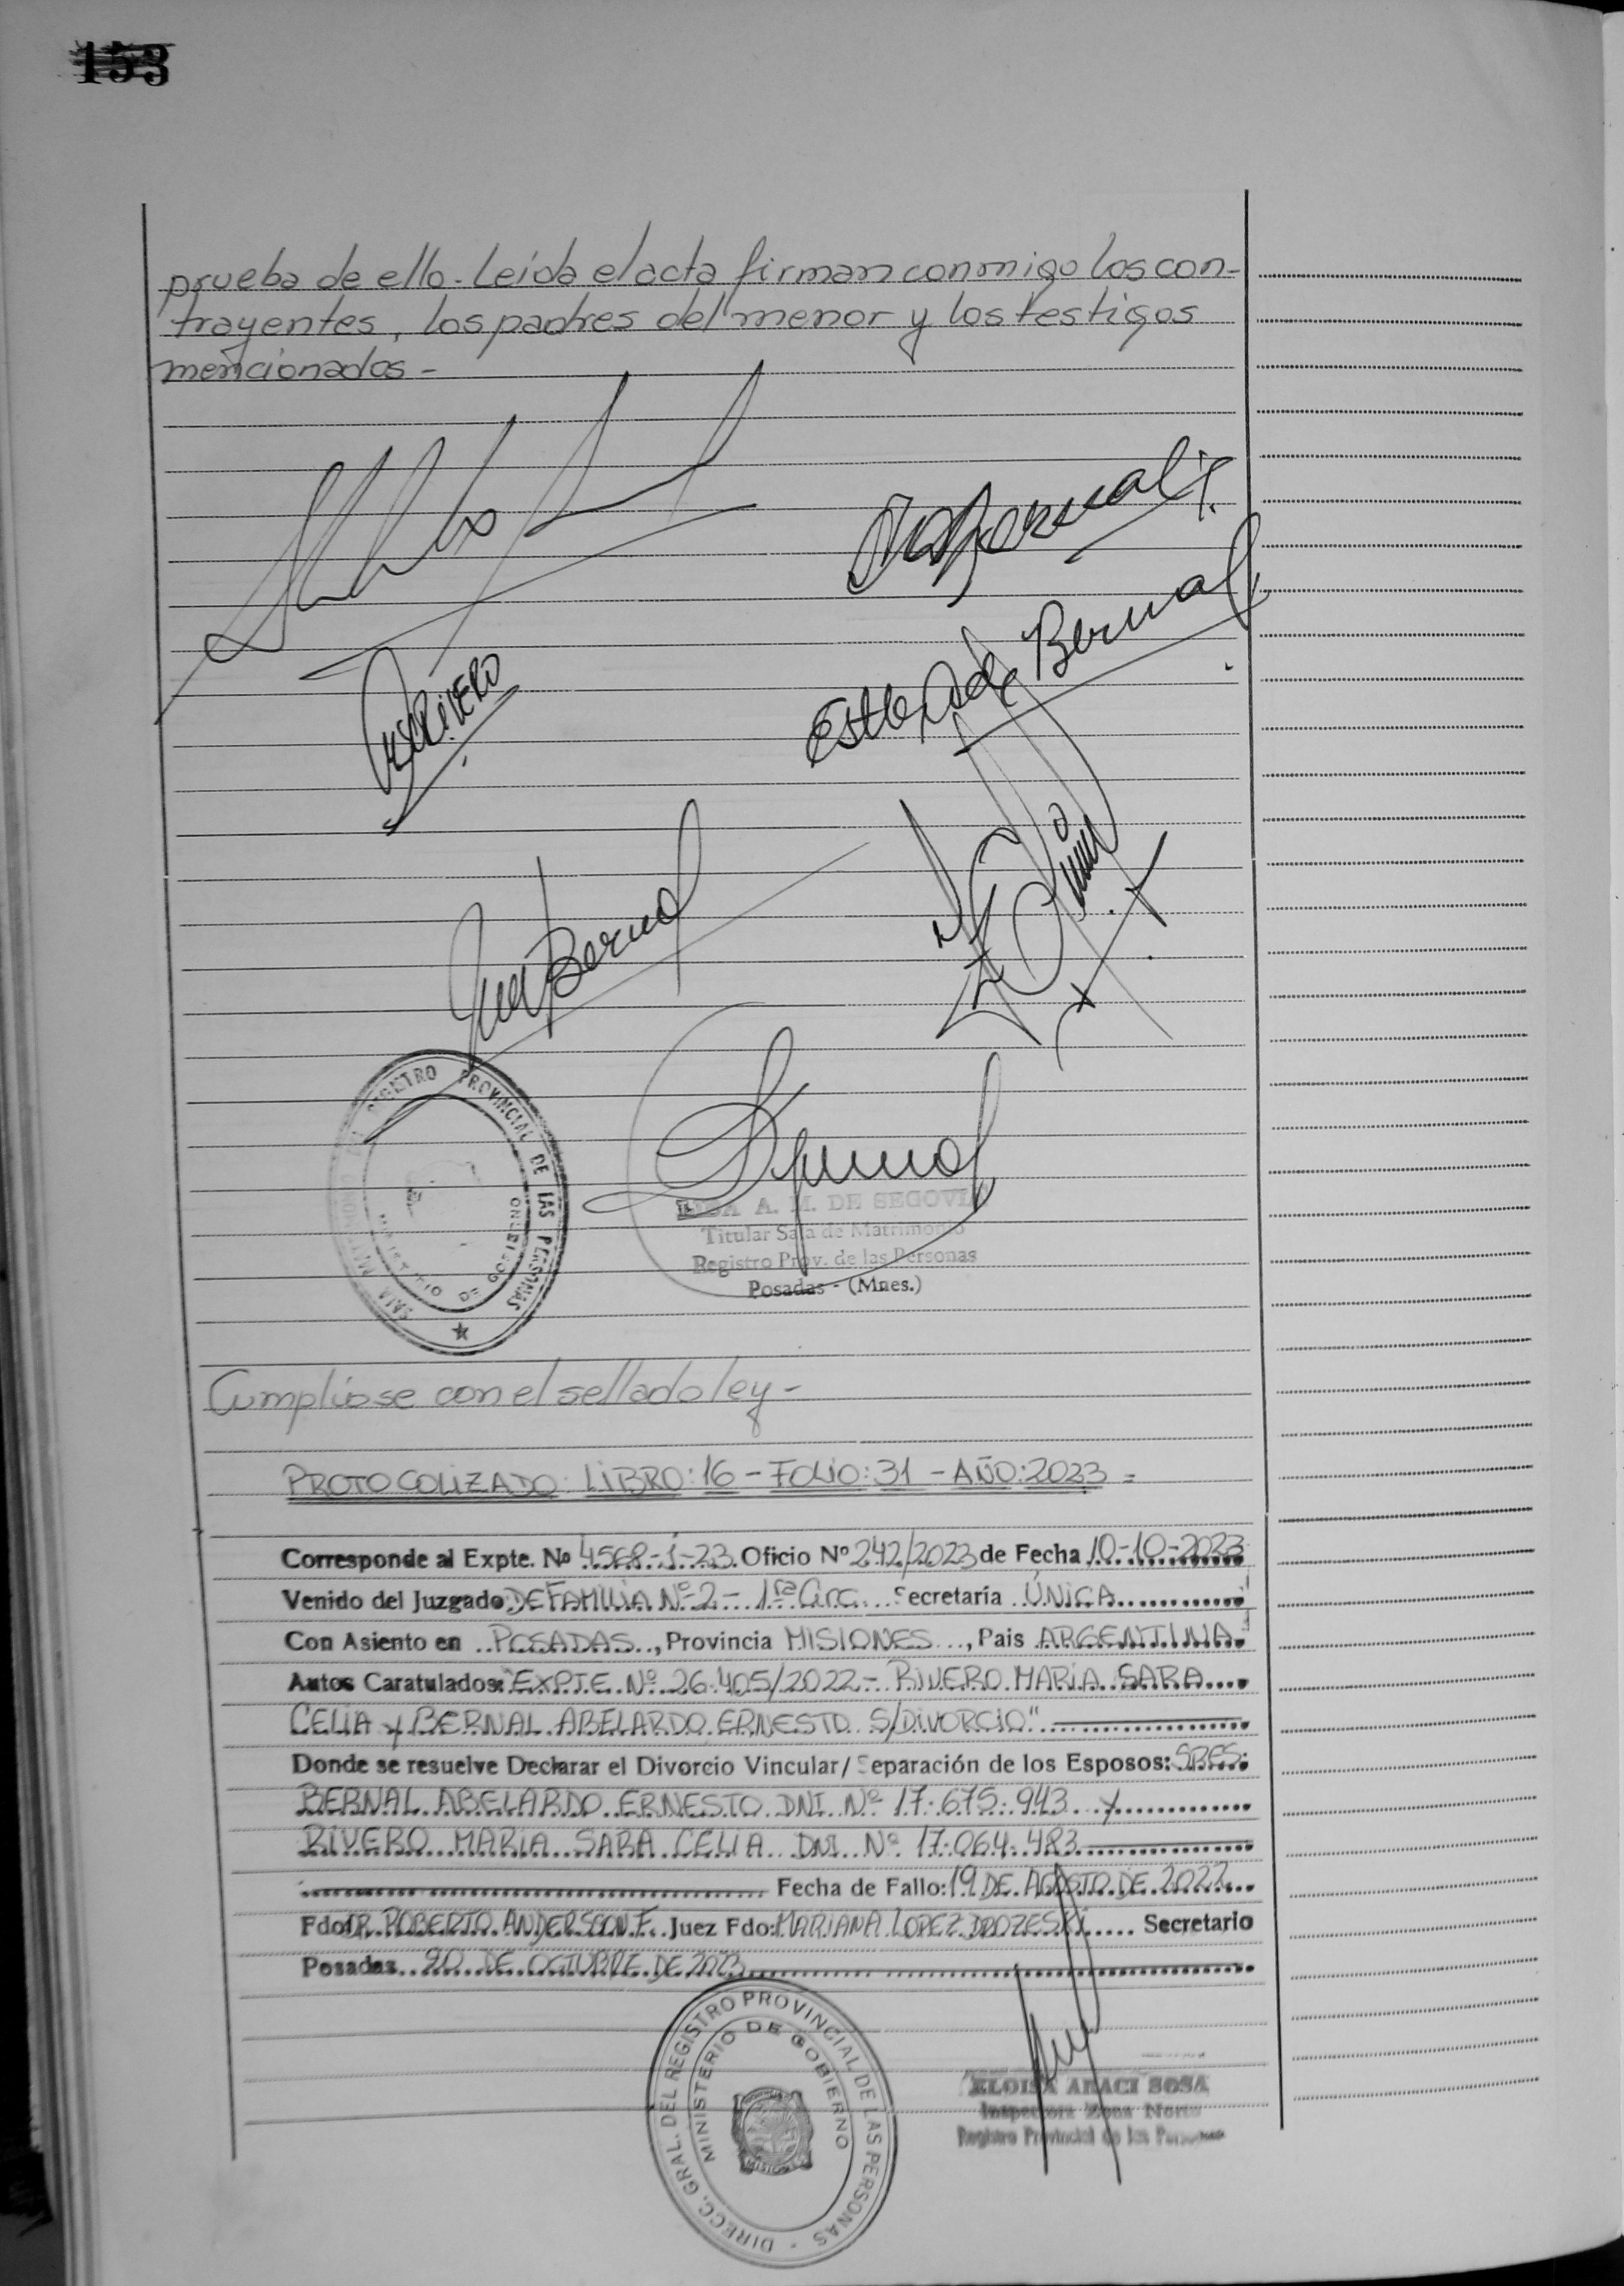 153
prueba de ello.- Leída el acta firman conmigo los con-
trayentes, los padres del menor y los testigos
mencionados -
RIVERO
Bernal
Esther de Bernal
Bernal
SALA MATRIMONIO DEL REGISTRO PROVINCIAL DE LAS PERSONAS
MINISTERIO DE GOBIERNO
A. M. DE SEGOVIA
Titular Sala de Matrimonio
Registro Prov. de las Personas
Posadas - (Mnes.)
Cumplióse con el sellado ley -
PROTOCOLIZADO: LIBRO: 16 - FOLIO: 31 - AÑO: 2023 =
Corresponde al Expte. Nº 4568-1-23. Oficio Nº 242/2023 de Fecha 10-10-2023
Venido del Juzgado DE FAMILIA Nº 2 - 1ra Circ. Secretaría ÚNICA
Con Asiento en POSADAS, Provincia MISIONES, Pais ARGENTINA.
Autos Caratulados: "EXPTE. Nº 26.405/2022 - RIVERO MARIA SARA
CELIA y BERNAL ABELARDO ERNESTO S/DIVORCIO"
Donde se resuelve Declarar el Divorcio Vincular/Separación de los Esposos: SRES:
BERNAL ABELARDO ERNESTO DNI Nº 17.675.943 y
RIVERO MARIA SARA CELIA DNI Nº 17.064.483
Fecha de Fallo: 19 DE AGOSTO DE 2022
Fdo: DR. ROBERTO ANDERSSON F. Juez Fdo: MARIANA LOPEZ DROZESKI Secretario
Posadas 20 DE OCTUBRE DE 2023
DIRECC. GRAL. DEL REGISTRO PROVINCIAL DE LAS PERSONAS
MINISTERIO DE GOBIERNO
MISIONES
ELOISA ARACI SOSA
Inspectora Zona Norte
Registro Provincial de las Personas